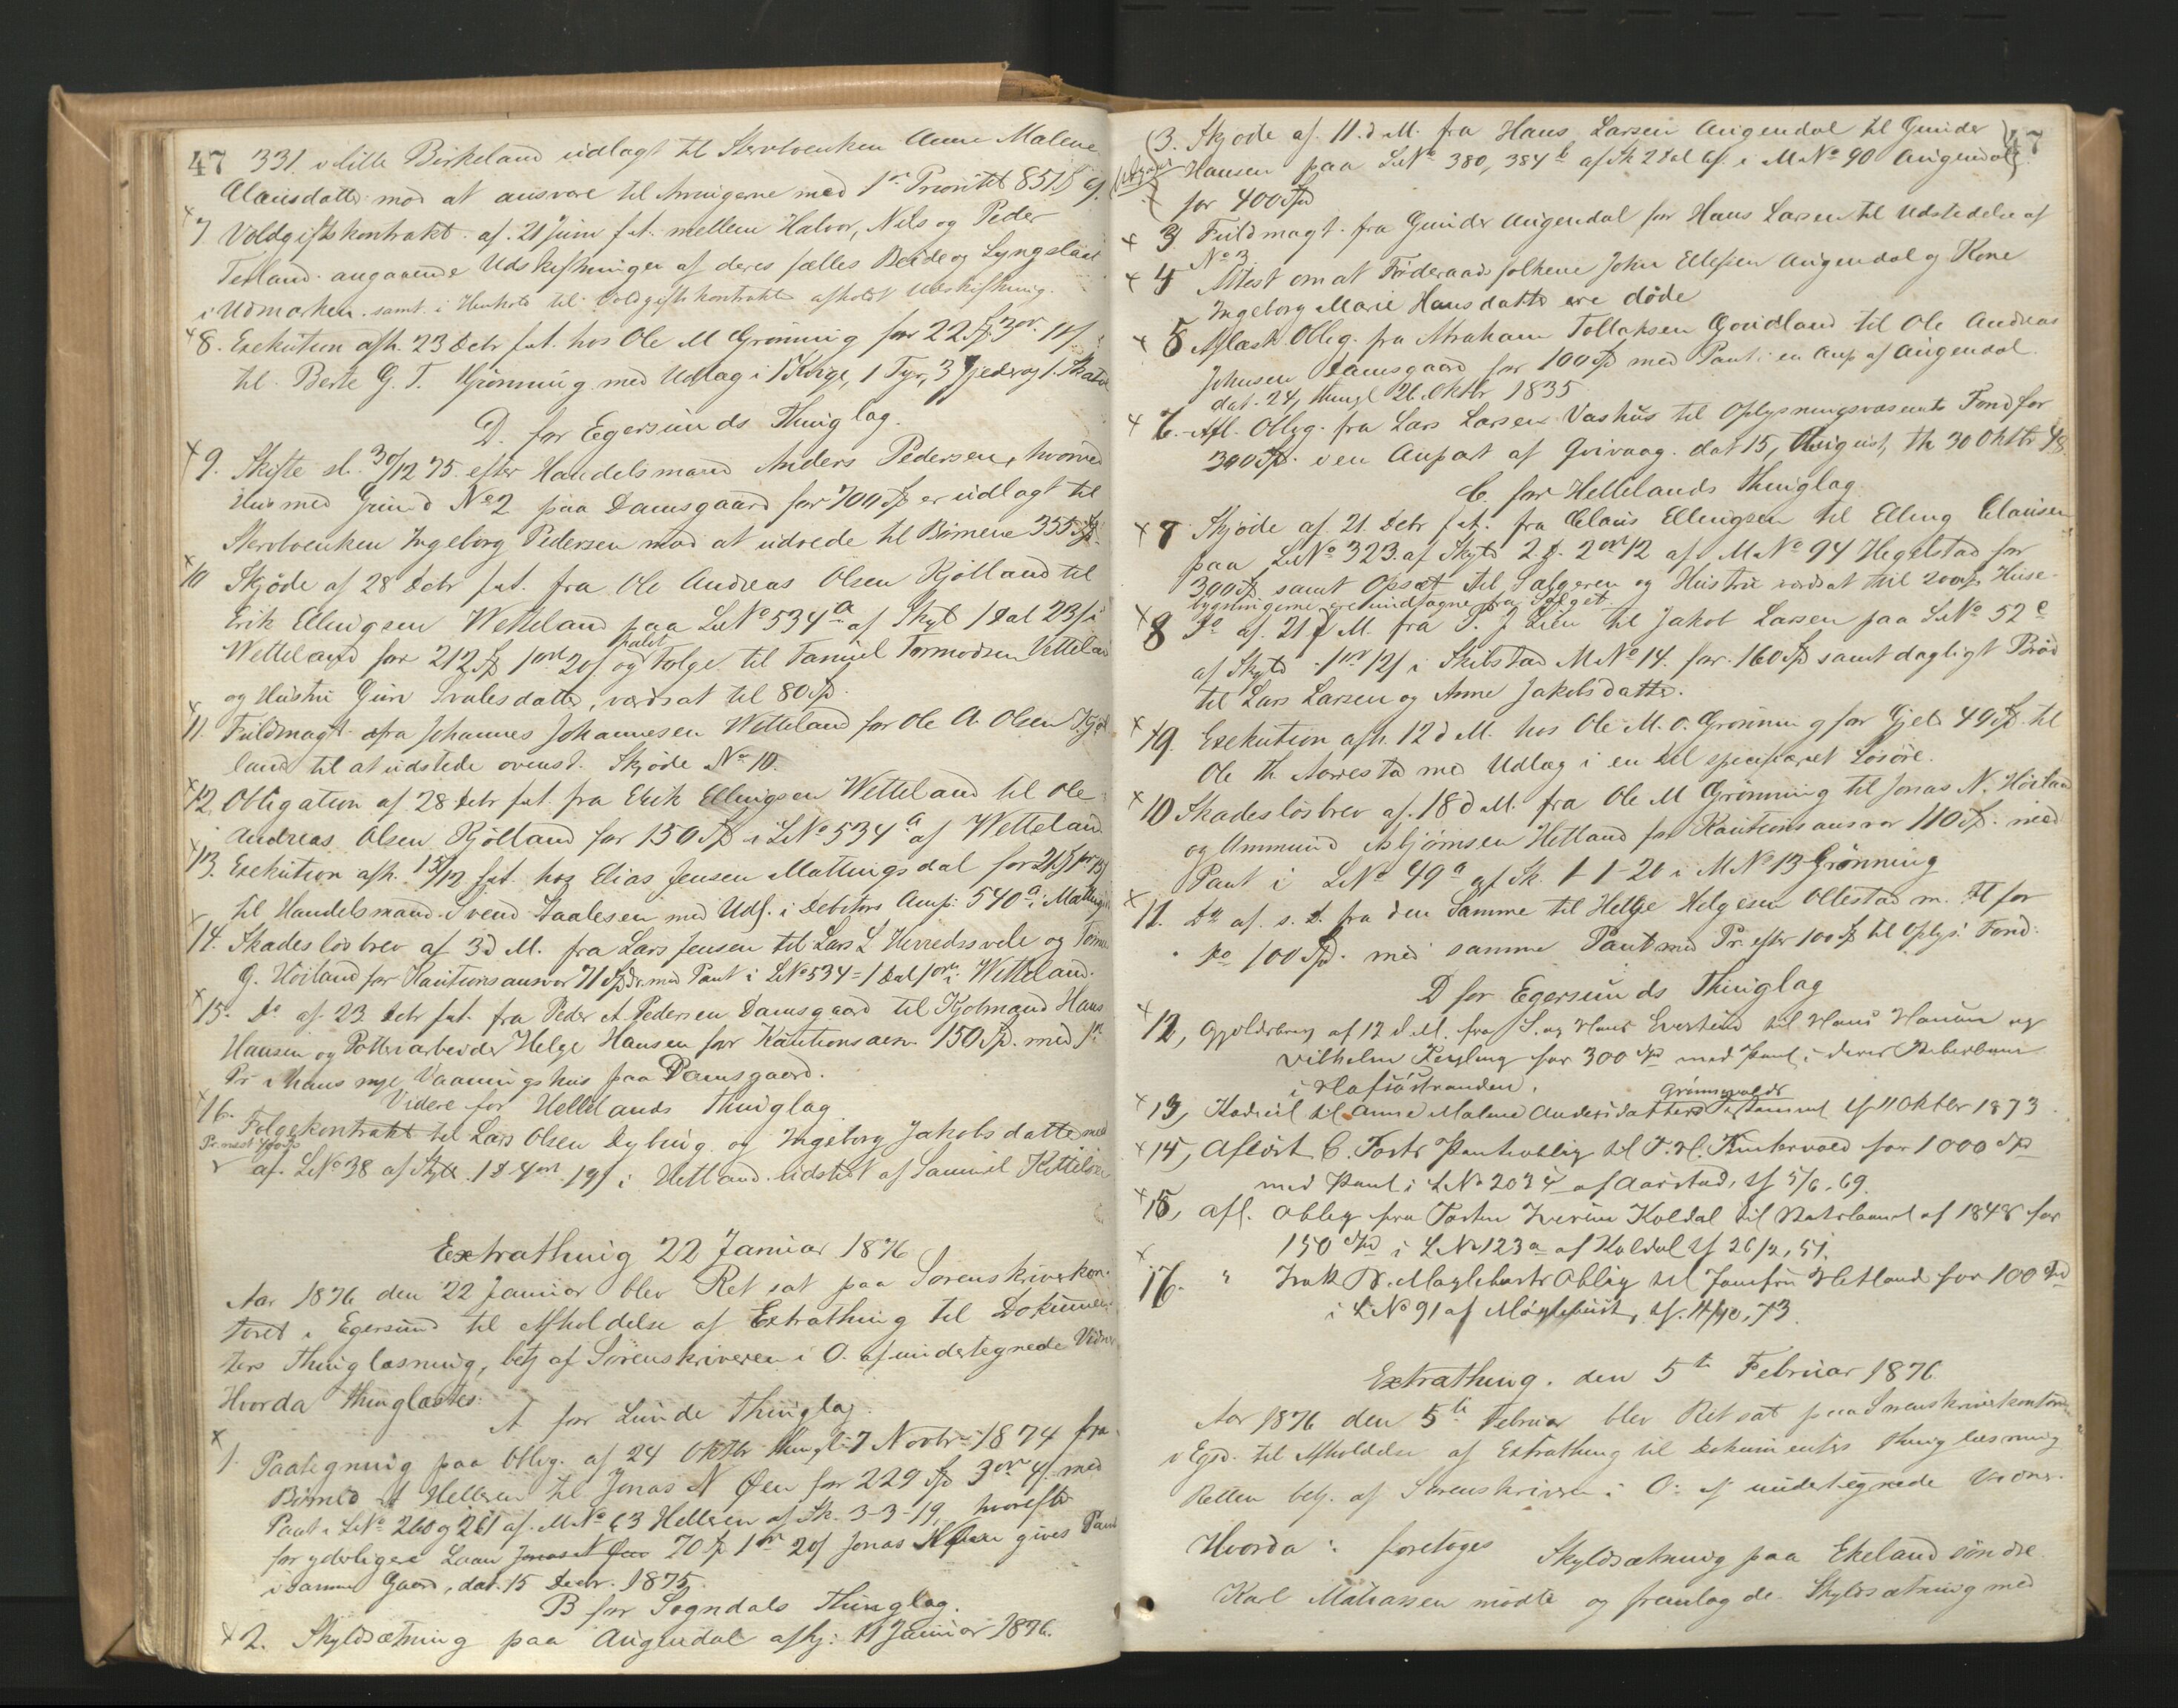 47 331 i lille Birkeland udlagt til Stervboenken Anne Malene
Clausdatter mod at ansvare til Arvingerne med 1ste Prioritet 851
× 7 Voldgiftskontrakt af 21 Juni f.A. mellem Halvor, Nils og Peder
Terland angaaende Udskiftninger af deres fælles Beide og Lyngslaat
i Udmarken samt i Henhold til Voldgiftskontrakten afholdt Udskiftning.
× 8. Exekution afh. 23 Debr f.A. hos Ole M Grønning for 22 Spd 3 ort 11 s
til Berte G. T. Grønning med Udlæg i 1 Kvige, 1 Tyr, 3 Gjeder og 1.
D. for Egersunds Thinglag.
× 9. Skifte sl. 30/12 75 efter Handelsmand Anders Pedersen, hvorved
Hus med Grund No 2 paa Damsgaard for 700 Spd er udlagt til
Stervboenken Ingeborg Pedersen mod at udrede til Børnene 355 Spd.
× 10 Skjøde af 28 Debr f.A. fra Ole Andreas Olsen Kjølland til
Erik Ellingsen Wetteland paa LNo 534a af Skyld 1 Dal 23 s i
Wetteland for 212 Spd 1 ort 20 s og Folge til Tamuel Tormodsen Vetteland
og Hustru Guri Svalesdatter, værdsat til 80 Spd.
× 11. Fuldmagt fra Johannes Johannesen Wetteland for Ole A. Olsen Kjøl
land til at udstede ovenst. Skjøde No 10.
× 12. Obligation af 28 Debr f.A. fra Erik Ellingsen Wetteland til Ole
Andreas Olsen Kjølland for 150 Spd i LNo 534a af Wetteland
× 13. Exekution afh. 15/12 f.A. hos Elias Jensen Mattingsdal for 21 Spd
til Handelsmand Svend Haalesen med Udl. i Debitors Anp. 540a i Mattings
× 14. Skadesløsbrev af 3 d M. fra Lars Jensen til Lars L Herredssvele og
G. Høiland for Kautionsansvar 71 Spdr. med Pant i LNo 534 = 1 Dal 1 ort i Wetteland.
× 15. Do af 23 Debr f.A. fra Peder A. Pedersen Damsgaard til Kjøbmand Hans
Hansen og Potteriarbeider Helge Hansen for Kautionsansv. 150 Spd. med 1ste
Pr i Hans nye Vaaningshus paa Damsgaard.
Videre for Hellelands Thinglag
× 16. Folgekontrakt til Lars Olsen Dybing og Ingeborg Jakobsdatter med
Pr. næst 400 Spd
af LNo 38 af Skyld 1 D 4 ort 19 s i Hetland udstedt af Samuel Kittilsen
Extrathing 22 Januar 1876
Aar 1876 den 22 Januar blev Ret sat paa Sorenskriverkon
toret i Egersund til Afholdelse af Extrathing til Dokumen
ters Thinglæsning, betj. af Sorenskriveren i O. af undertegnede Vidner
Hvorda thinglæstes:
A for Lunde Thinglag.
× 1. Paategning paa Oblig. af 24 Oktbr thingl. 7 Novbr 1874 fra
til Jonas N Øen for 229 Spd 3 ort 4 s med
Pant i LNo 260 og 261 af MNo 63 Helleren af Sk. 3-3-19, hvorefter
for yderligere Laan Jonas N Øen 70 Spd 1 ort 20 s Jonas N Øen gives Pant
i samme Gaard, dat. 15 Decbr. 1875.
B for Sogndals Thinglag.
× 2. Skyldsætning paa Augendal afhj. 11 Januar 1876.
47
(3. Skjøde af 11. d M. fra Hans Larsen Augendal til Gunder
Hansen paa LNo 380, 384b af Sk 2 Dal 6 s. i MNo 90 Augendal
for 400 Spd
× 3 Fuldmagt fra Gunder Augendal for Hans Larsen til Udstedelse af
No 3
× 4 Attest om at Føderaadsfolkene John Ellefsen Augendal og Kone
Ingeborg Marie Hansdatter ere døde
× 5 Aflæst Oblig. fra Abraham Tollaksen Goudland til Ole Andreas
Johnsen Damsgaard for 100 Spd med Pant i en Anp af Augendal
dat. 24, thingl 26 Oktbr 1835
× 6. Afl. Oblig. fra Lars Larsen Vashus til Oplysningsvæsenets Fond for
300 Spd. i en Anpart af Qvivaag. dat 15, August, Th 30 Oktbr 48
C. for Hellelands Thinglag
× 7 Skjøde af 21. Debr f.A. fra Claus Ellingsen til Elling Clausen
paa LNo 323. af Skyld 2 D. 2 ort 12 af MNo 94 Hegelstad for
300 Spd samt Opsæt til Sælgeren og Hustru værdsat til 200 Spd. Huse
bygningerne ere undtagne fra Salget
× 8 Do af 21 d M. fra P. J Lien til Jakob Larsen paa LNo 52c
af Skyld 1 ort 12 s i Skibstad MNo 14. for 160 Spd samt dagligt Brød
til Lars Larsen og Anne Jakobsdatter.
× 9. Exekution afh. 12 d M. hos Ole M. O. Grønning for Gjeld 49 Spd til
Ole Th Aarrestad med Udlæg i en Del specificeret Løsøre.
× 10 Skadesløsbrev af 18 d M. fra Ole M Grønning til Jonas N. Høiland
og Ammund Asbjørnsen Hetland for Kautionsansvar 110 Spd. med
Pant i LNo 49a af Sk. 1-1-20 i MNo 13 Grønning
× 11. Do af s. D. fra den Samme til Helge Helgesen Ollestad m. Fl for
Do 100 Spd. med samme Pant med Pr. efter 100 Spd til Oplys. Fond.
D for Egersunds Thinglag
× 12, Gjeldsbrev af 12 d M. fra S. og Hans Evertsen til Hans Hansen og
Vilhelm Feyling for 300 Spd med Pant i deres
i Hafsøstranden.
× 13, Kodicil til Anne Malene Andersdatters Grønnevolds Testament af 11 Oktbr 1873
× 14, Aflæst C. Fosts Pantoblig til P. H. for 1000 Spd
med Pant i LNo 203 af Aarstad, tf 5/6. 69.
× 15, Afl. Oblig fra Iversen Koldal til af 1848 for
150 Spd i LNo 123a af Koldal tf 26/2, 51.
× 16. " Oblig til Jomfru Hetland for 100 Spd
i LNo 91 af
Extrathing. den 5te Februar 1876
Aar 1876 den 5te Februar blev Ret sat paa Sorenskriverkontoret
i Egsd. til Afholdelse af Extrathing til Dokumenters Thinglæsning
Retten betj. af Sorenskriveren i O. af undertegnede Vidner.
Hvorda: foretoges Skyldsætning paa Ekeland søndre.
Karl Mathiassen mødte og fremlagde Skyldsætning med